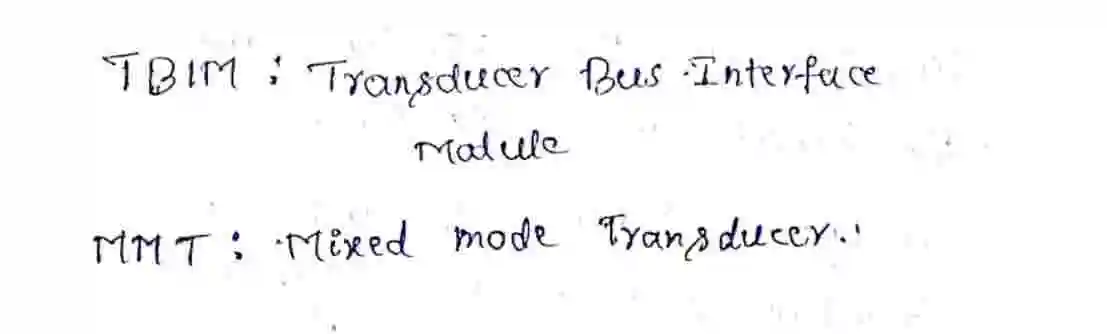 TBIM : Transducer Bus Interface
Madule
MMT : Mixed mode Transducer.